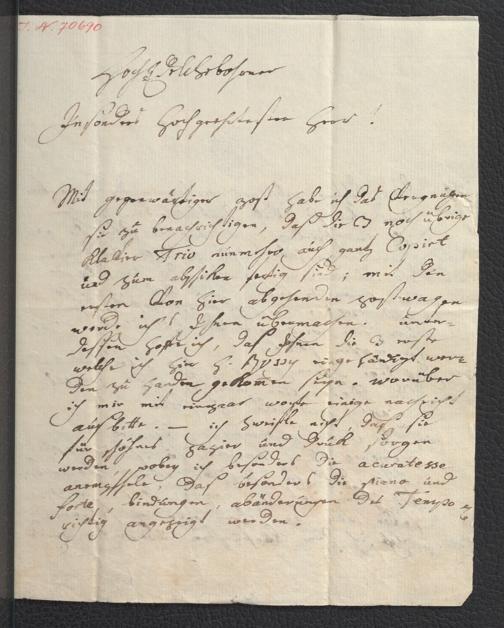 I. N. 70690
Hoch Edelgebohrner
Insonders Hochgeehrtester Herr !
Mit gegenwärtiger post habe ich das Vergnügen
sie zu benachrichtigen, daß die 3 noch übrige
Klavier Trio nunmehro auch gantz Copirt
und zum abschiken fertig sind; mit den
ersten Von hier abgehenden postwagen
werde ich's Ihnen übermachen. unter-
dessen hoffe ich, daß Ihnen die 3 erste
welche ich hier H. eingehändigt wor-
den zu handen gekomen seyn. worüber
ich mir mit ein paar worte einige nachricht
ausbitte. — ich zweifle nicht, daß sie
für schönes papier und Druk sorgen
werden, wobey ich besonders die acuratesse
anempfehle. Daß besonders die piano und
forte, bindungen, abänderungen des Tempo
richtig angezeigt werden.